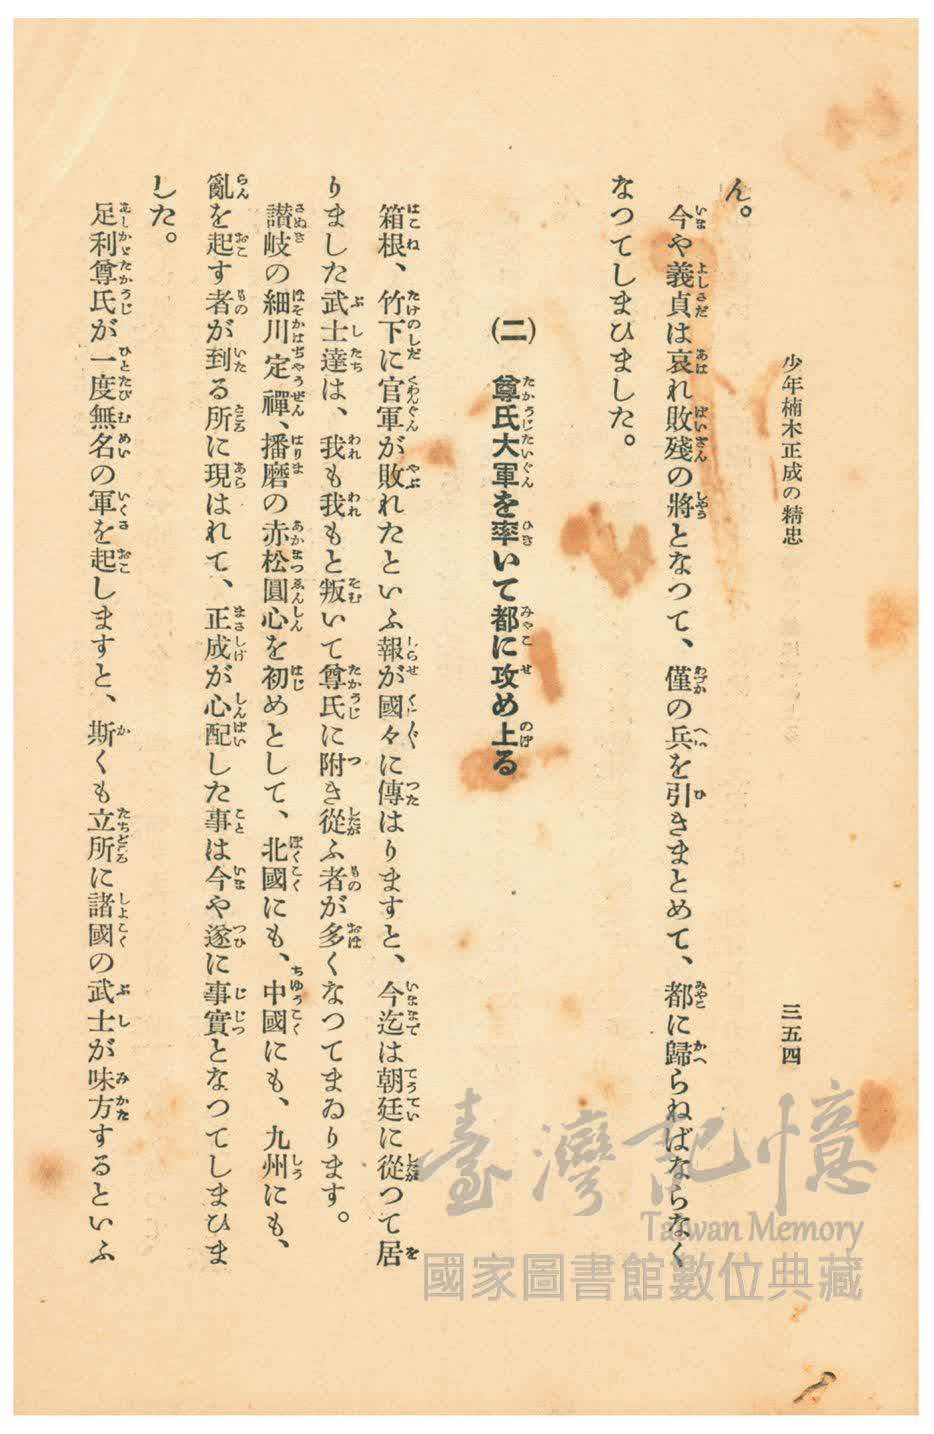 少年楠木正成の精忠
三五四
ん。
今や義貞は哀れ敗殘の將となつて、僅の兵を引きまとめて、都に歸らねばならなく
なつてしまひました。
(二) 尊氏大軍を率いて都に攻め上る
箱根、竹下に官軍が敗れたといふ報が國々に傳はりますと、今迄は朝廷に從つて居
りました武士達は、我も我もと叛いて尊氏に附き從ふ者が多くなつてまゐります。
讃岐の細川定禪、播磨の赤松圓心を初めとして、北國にも、中國にも、九州にも、
亂を起す者が到る所に現はれて、正成が心配した事は今や遂に事實となつてしまひま
した。
足利尊氏が一度無名の軍を起しますと、斯くも立所に諸國の武士が味方するといふ
臺灣記憶
Taiwan Memory
國家圖書館數位典藏